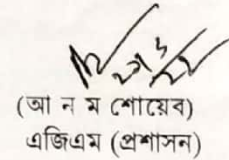 (আ ন ম শোয়েব)
এজিএম (প্রশাসন)